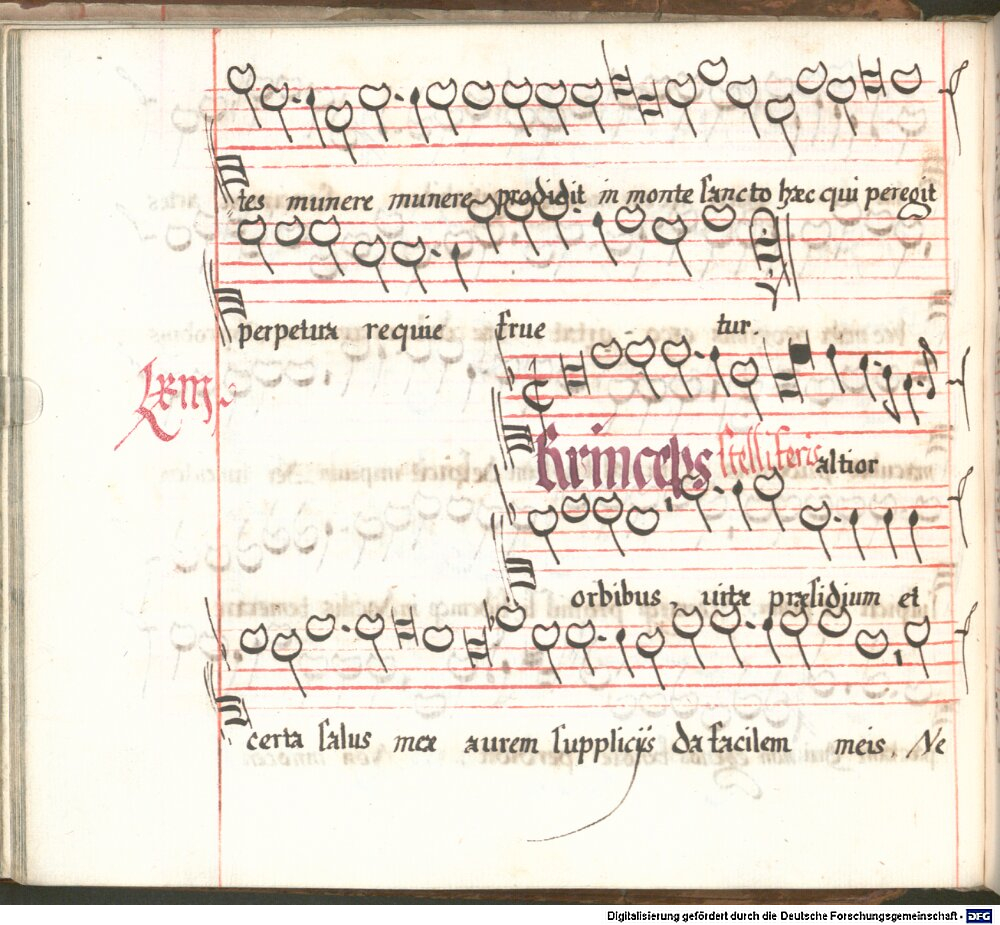 tes munere munere prodidit in monte sancto hæc qui peregit
perpetua requie frue tur.
Princeps stelliferis altior
orbibus, uitæ præsidium et
certa salus meæ aurem supplicijs da facilem meis, Ne
Digitalisierung gefördert durch die Deutsche Forschungsgemeinschaft - DFG